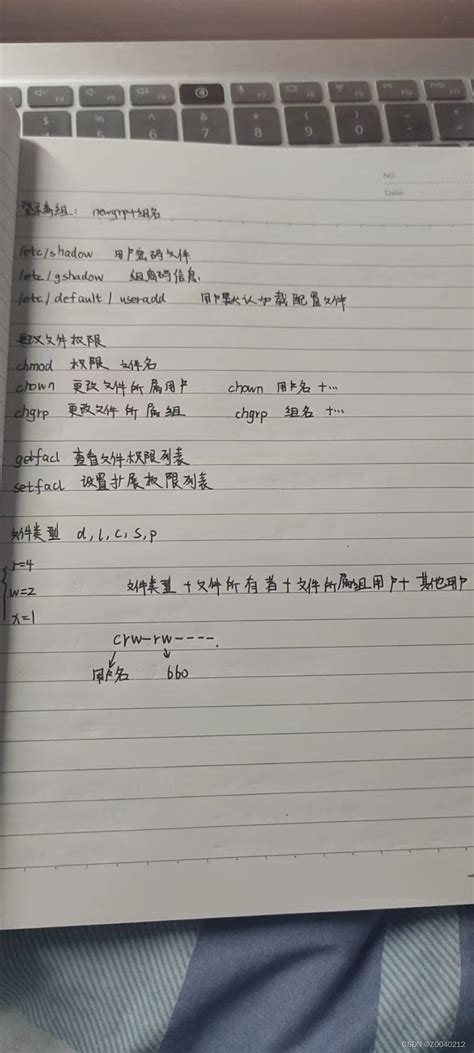 登录新组: newgrp+组名
/etc/shadow 用户密码文件
/etc/gshadow 组密码信息.
/etc/default/useradd 用户默认加载配置文件
更改文件权限
chmod 权限 文件名
chown 更改文件所属用户 chown 用户名 +...
chgrp 更改文件所属组 chgrp 组名 +...
getfacl 查看文件权限列表
setfacl 设置扩展权限列表
文件类型 d, l, c, s, p
r=4
w=2 文件类型+文件所有者+文件所属组用户+其他用户
x=1
crw-rw----.
用户名 660
NO.
Date
CSDN @Z0040212